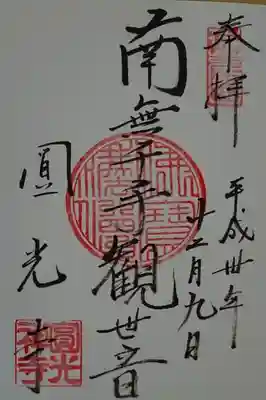 奉拝
平成卅年
十二月九日
南無千手觀世音
圓光寺
圓光
禅寺